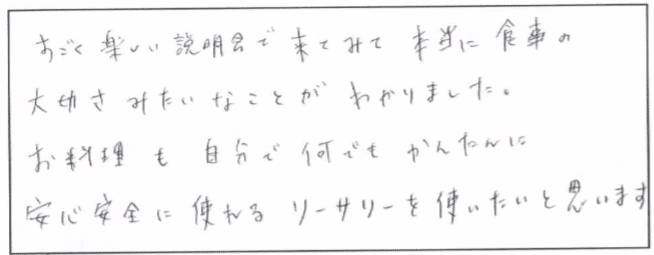 すごく楽しい説明会で来てみて本当に食事の
大切さみたいなことがわかりました。
お料理も自分で何でもかんたんに
安心安全に使えるリーサリーを使いたいと思います